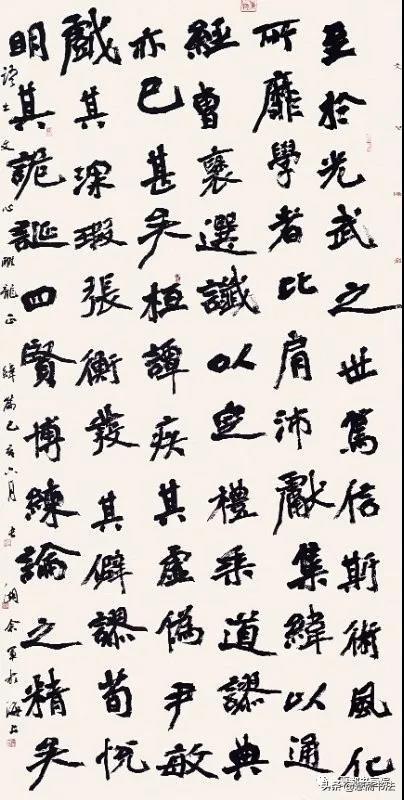 至於光武之世篤信斯術風化
所靡學者比肩沛獻集緯以通
經曹褒選讖以定禮乖道謬典
亦已甚矣桓譚疾其虛偽尹敏
戲其深瑕張衡發其僻謬荀悅
明其詭誕四賢博練論之精矣
語出文心雕龍正緯篇己亥六月余軍於海上
头条
书法